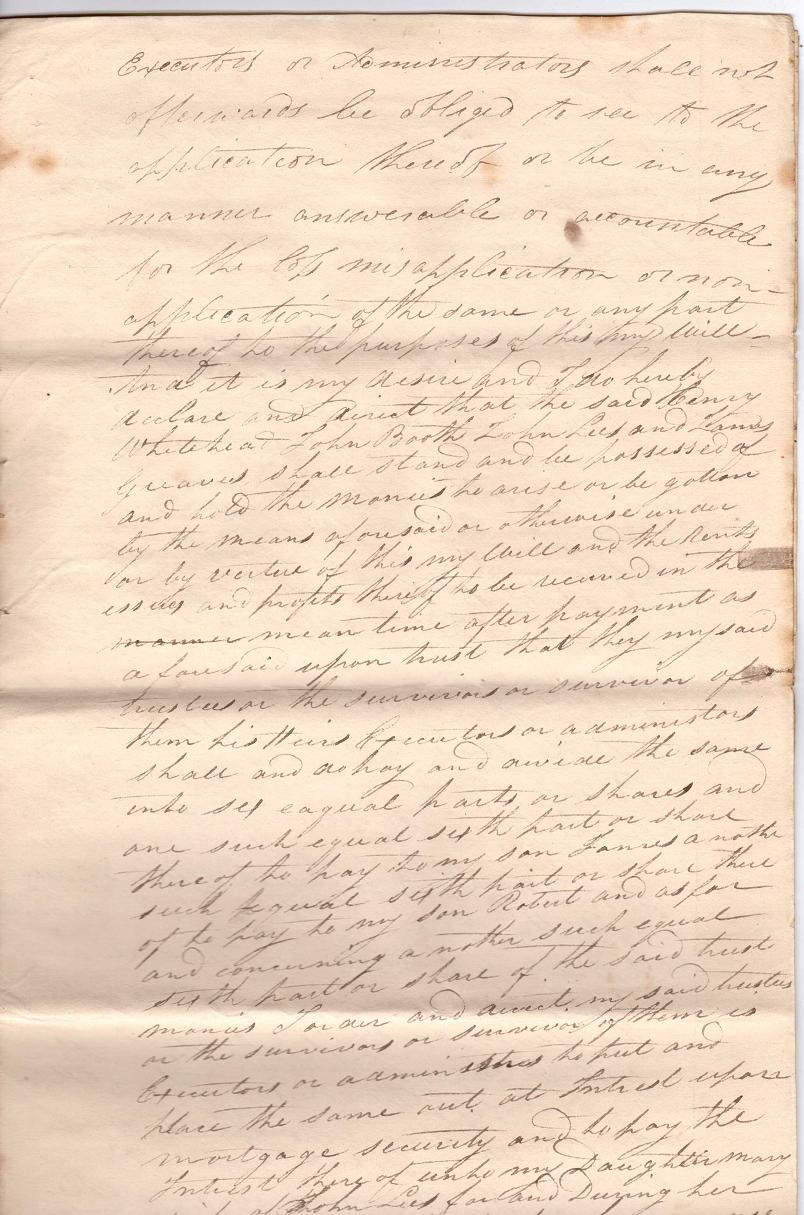 Executors or Administrators shall not
afterwards be obliged to see to the
application thereof or be in any
manner answerable or accountable
for the loss misapplication or non-
application of the same or any part
thereof to the purposes of this my Will -
And it is my desire and I do hereby
declare and direct that the said Henry
Whitehead John Booth John Lees and James
Greaves shall stand and be possessed of
and hold the monies to arise or be gotton
by the means aforesaid or otherwise under
or by vertue of this my Will and the Rents
issues and profits thereof to be received in the
manner mean time after payment as
aforesaid upon trust that they my said
trustees or the survivors or survivor of
them his Heirs Executors or administors
shall and do pay and divide the same
into six eaqual parts or shares and
one such equal sixth part or share
thereof to pay to my son James a nothe
such equal sixth part or share there
of to pay to my son Robert and as for
and concerning a nother such equal
sixth part or share of the said trust
monies I order and direct my said trustees
or the survivors or survivor of them is
Executors or to put and
place the same out at Intrest upon
mortgage security and to pay the
Intrest there of unto my Daughter mary
John Lees for and During her